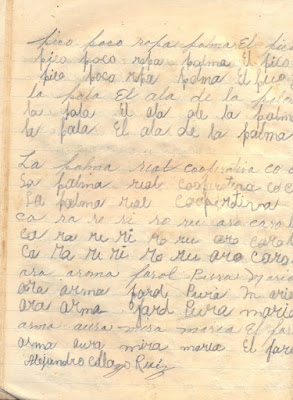 pico poco ropa palma El pico
pico poco ropa palma El pico
pico poco ropa palma El pico
la pala El ala de la palma
la pala El ala de la palma
la pala El ala de la palma
La palma real cooperativa co
La palma real cooperativa coc
La palma real cooperativa
ca ra re ri ro ru aro carol
ca ra re ri ro ru aro carol
Ca ra re ri ro ru aro caro
ara arma farol Pura Maria
ara arma farol Pura Maria
ara arma farol Pura maria
arma aura mira maria El faro
arma aura mira maria El faro
Alejandro Collazo Ruiz